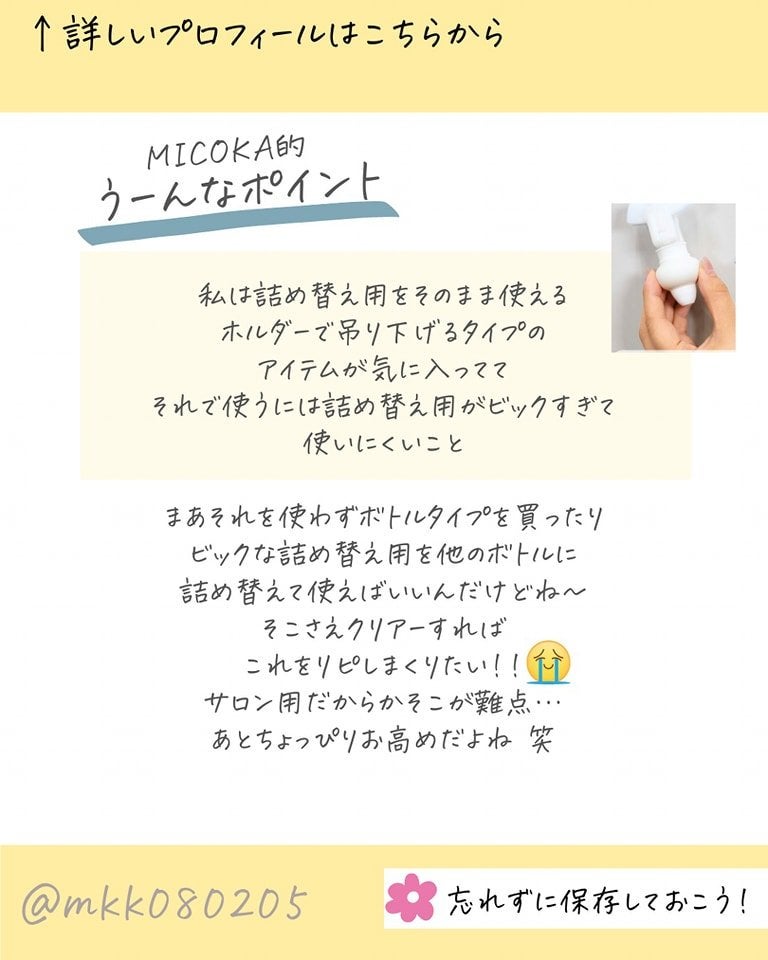 ↑詳しいプロフィールはこちらから
MICOKA的
うーんなポイント
私は詰め替え用をそのまま使える
ホルダーで吊り下げるタイプの
アイテムが気に入ってて
それで使うには詰め替え用がビックすぎて
使いにくいこと
まあそれを使わずボトルタイプを買ったり
ビックな詰め替え用を他のボトルに
詰め替えて使えばいいんだけどね〜
そこさえクリアーすれば
これをリピしまくりたい!!😭
サロン用だからかそこが難点…
あとちょっぴりお高めだよね 笑
@mkk080205
忘れずに保存しておこう!